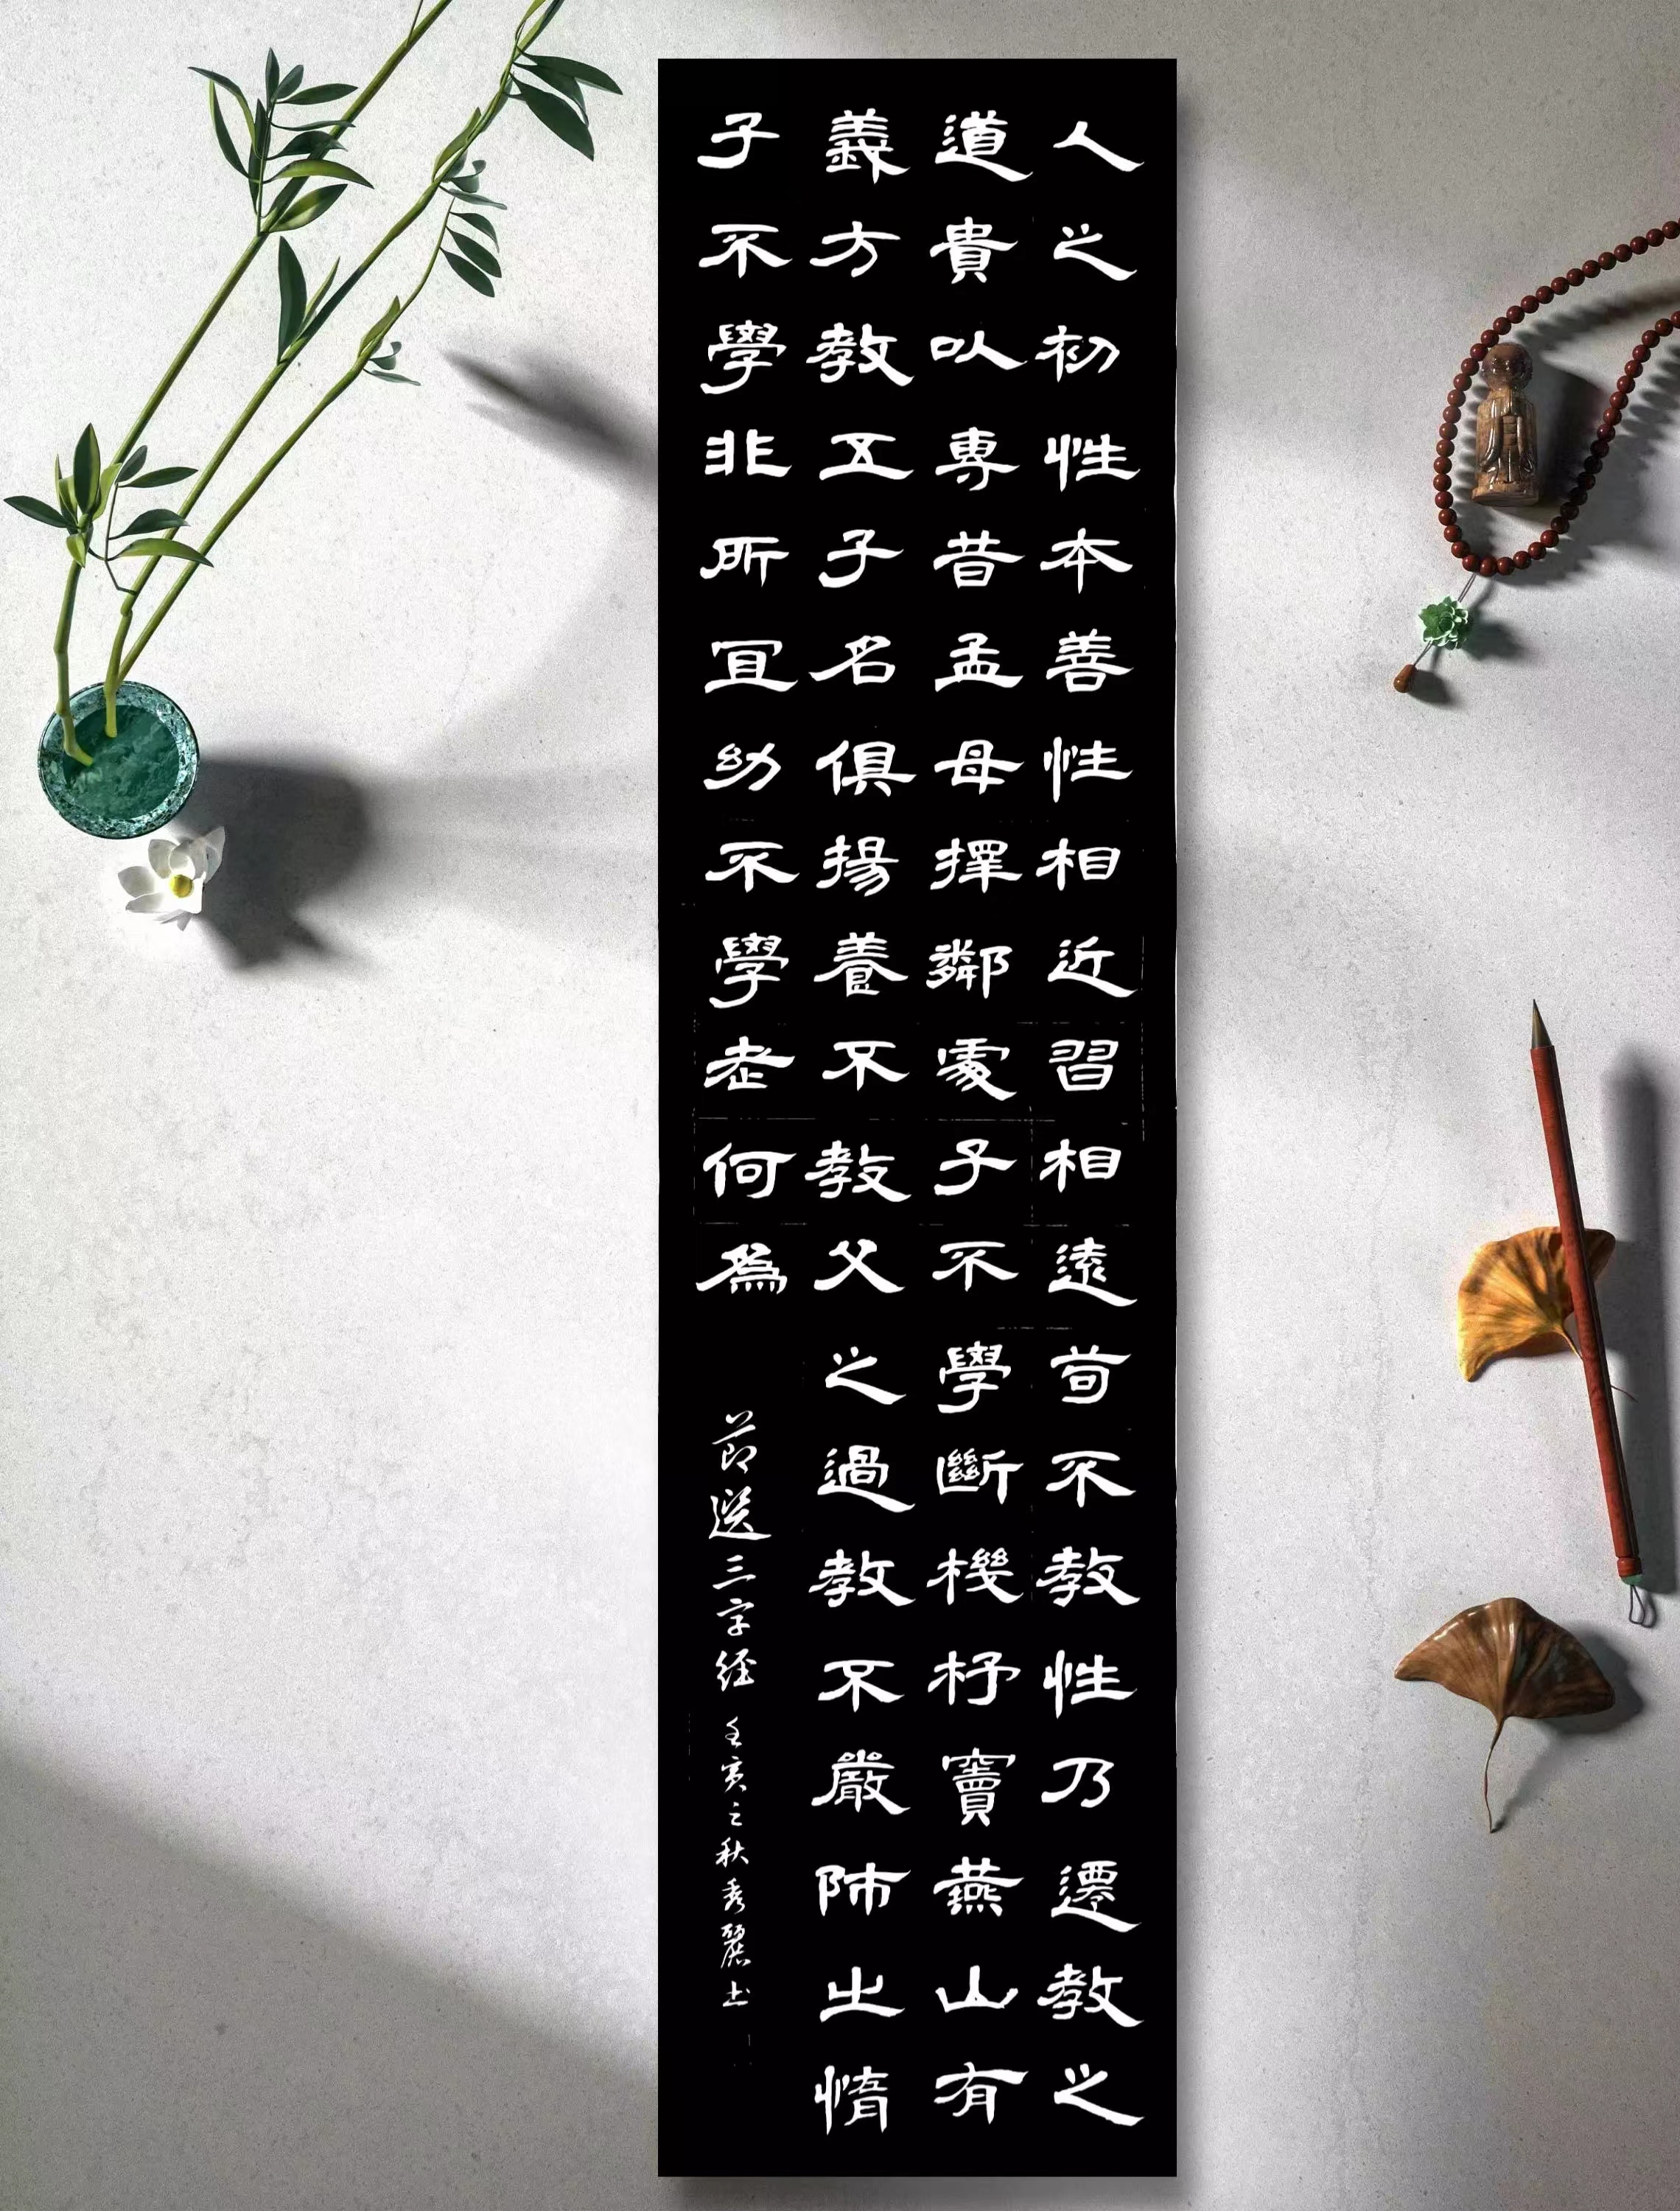 人之初性本善性相近習相遠苟不教性乃遷教之
道貴以專昔孟母擇鄰處子不學斷機杼竇燕山有
義方教五子名俱揚養不教父之過教不嚴師之惰
子不學非所宜幼不學老何為
節選三字經 壬寅之秋秀麗書